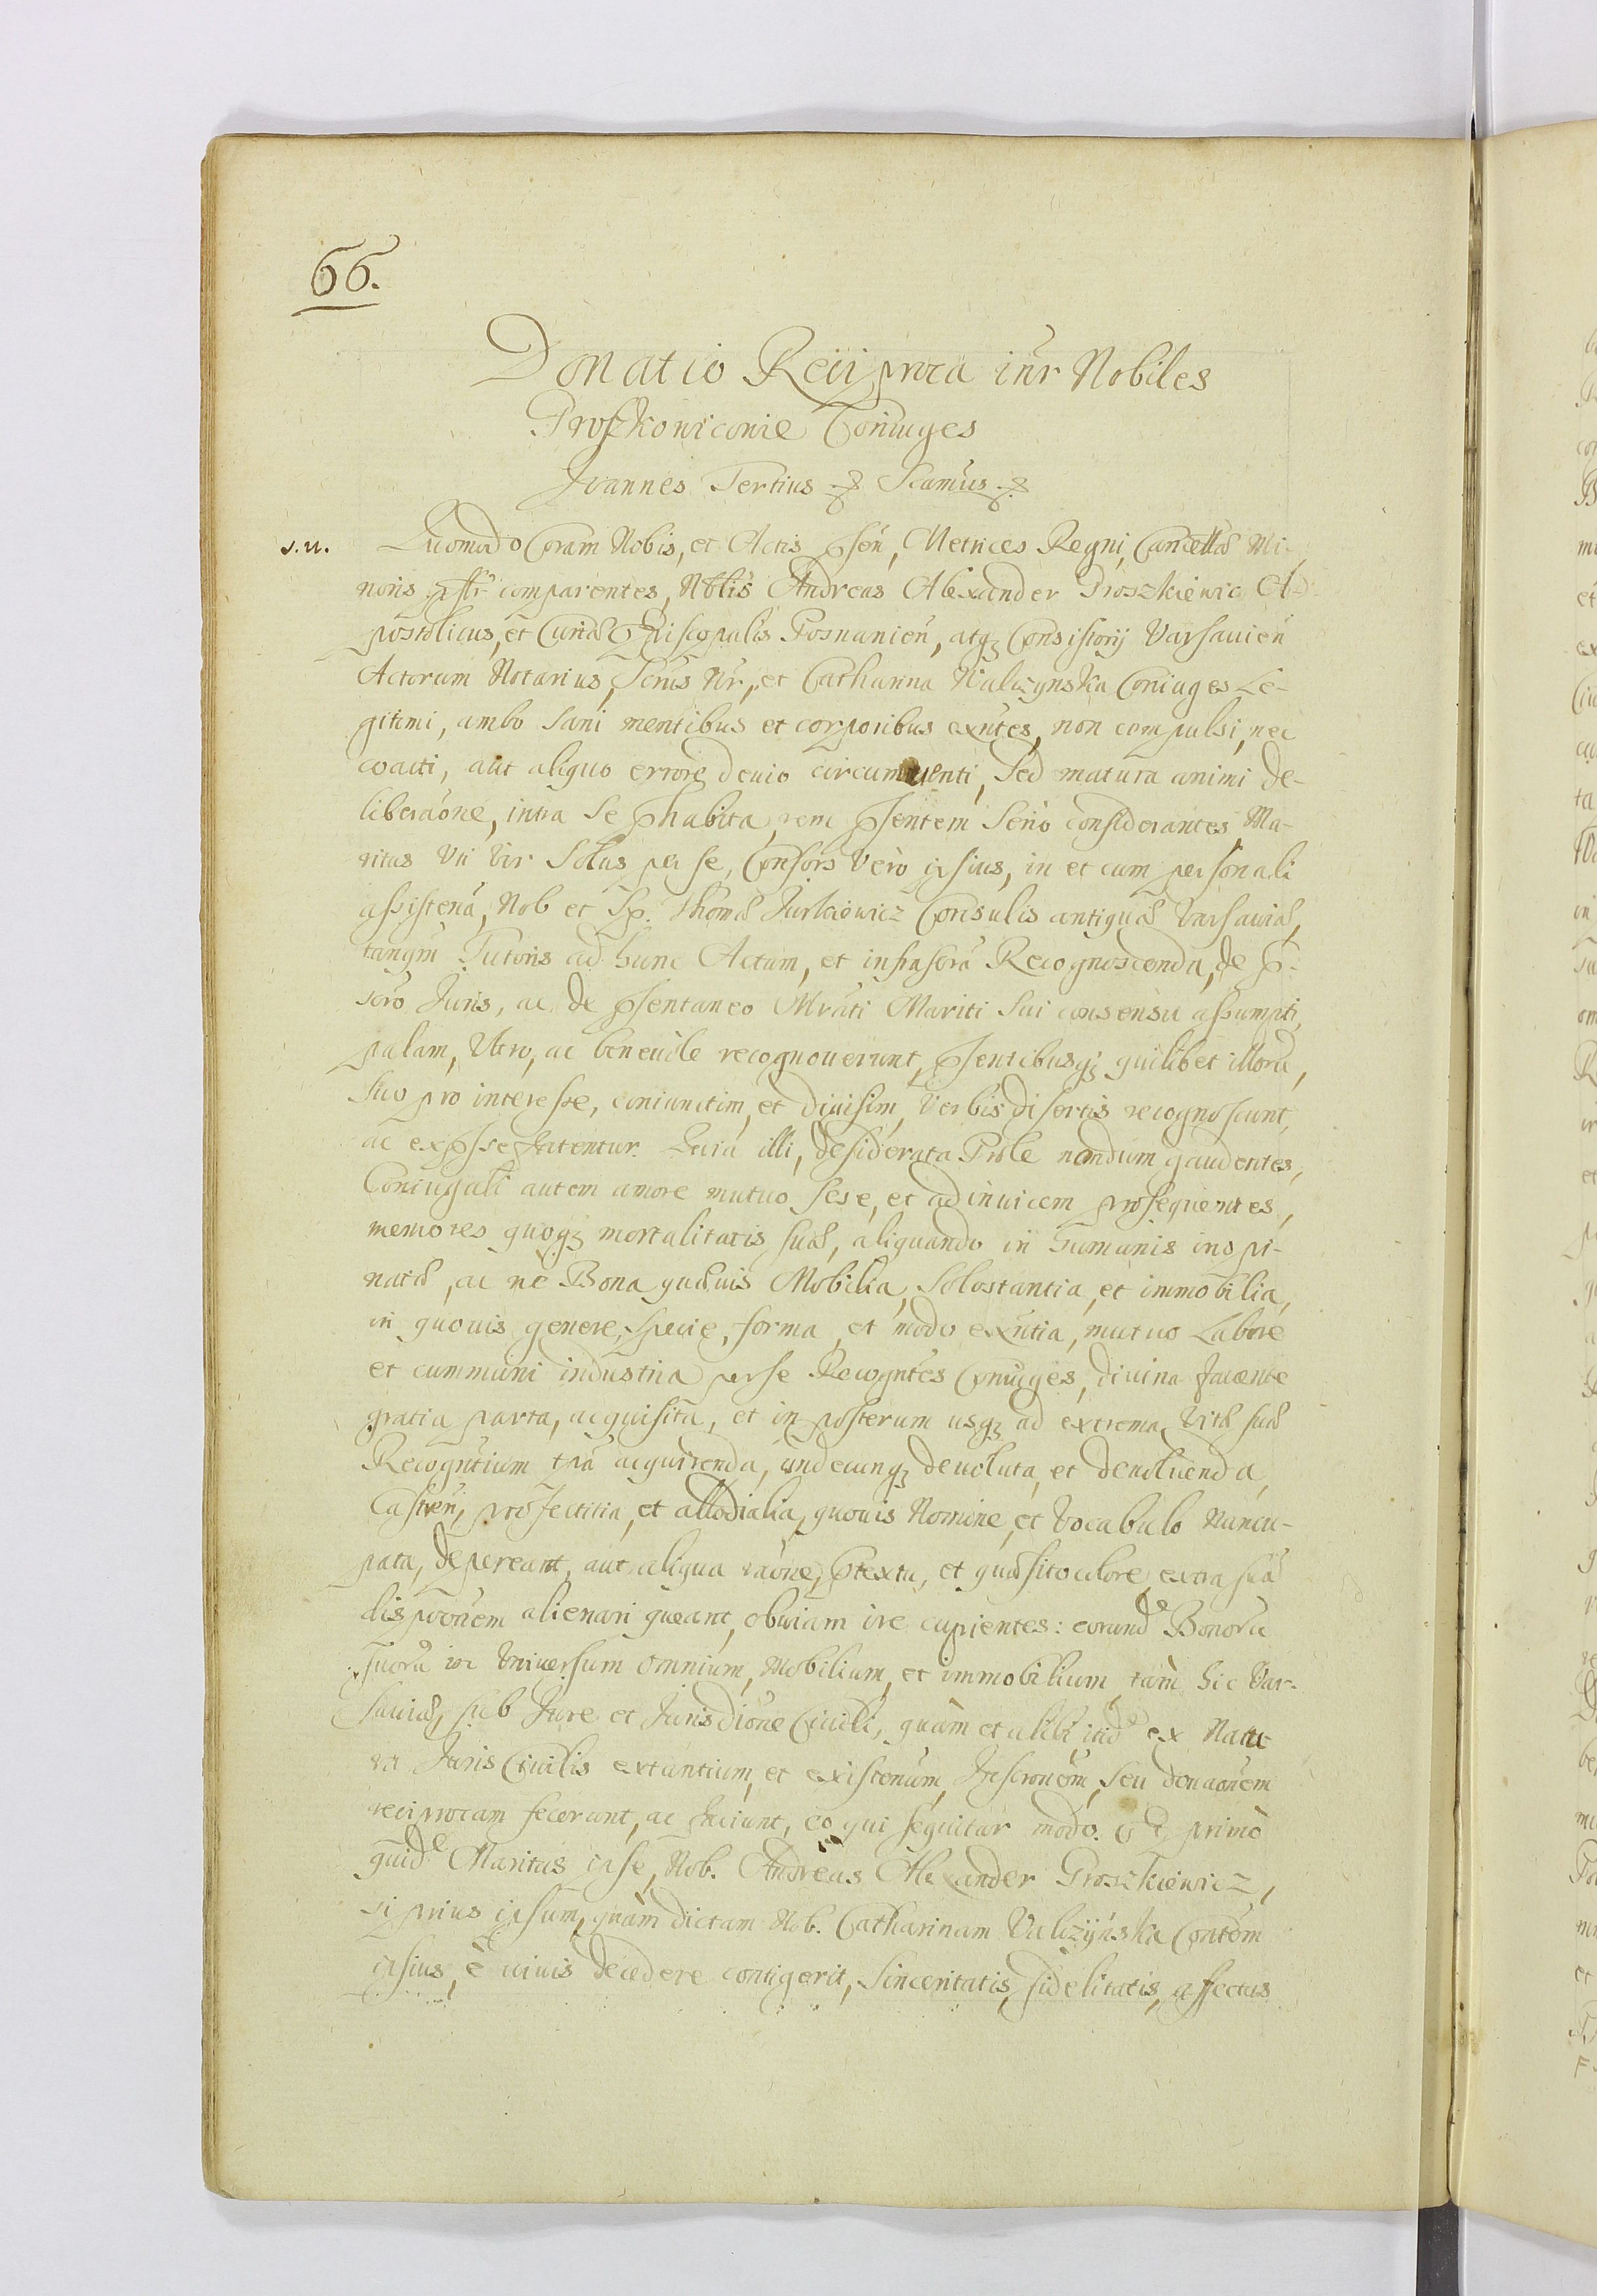 66.
Donatio Reciproca intr Nobiles
Proszkowicowie Coniuges
Joannes Tertius etc Scamus etc
J. N. Quomodo Coram Nobis, et Actis psen, Metrices Regni, Cancellae Mi-
noris pstr comparentes, Nblis Andreas Alexander Proszkiewic A-
postolicus, et Curiae Episcopalis Posnanien, atq Consistorij Varsavien
Actorum Notarius, Scrius Nr, et Catharina Walczynska Coniuges Le-
gitimi, ambo sani mentibus et corporibus exntes, non compulsi, nec
coacti, aut aliquo errore devio circumventi, Sed matura animi de-
liberaone, intra Se phabita, rem psentem Serio considerantes Ma-
ritus Vti Vir Solus per se, Consors Vero ipsius, in et cum personali
assistena, Nob et Sp. Thomae Jurkiewicz Consulis antiquae Varsaviae,
tanqm Tutoris ad hunc Actum, et infrascra Recognoscenda, de p-
scro Juris, ac de psentaneo Mrati Mariti Sui consensu assumpti,
palam, Vltro, ac benevole recognoverunt, psentibusq quilibet illoru,
suo pro interesse, coniunctim, et divisim, Verbis disertis recognoscunt,
ac expsse fatentur. Quia illi, desiderata Prole nondum gaudentes,
Coniugali autem amore mutuo sese, et ad invicem prosequentes,
memores quoq mortalitatis suae, aliquando in humanis inopi-
natae, ac ne Bona quaevis Mobilia, Solostantia, et immobilia,
in quovis genere, specie, forma, et modo exntia, mutuo Labore
et communi industria per se Recogntes Coniuges, divina favente
gratia parta, acquisita, et in posterum usq ad extrema Vitae suae
Recogntium tpa acquirenda, undecunq devoluta, et devolvenda,
Castren, profectitia, et allodialia, quovis Nomine, et Vocabulo Nuncu-
pata, depereant, aut aliqua raone, ptextu, et quaesito colore, extra sua
dispoonem alienari queant, obviam ire cupientes: eorunde Bonoru
suoru in Vniversum omnium, Mobilium, et immobilium tam hic Var-
saviae, sub Jure et Jurisdione Civili, quam et alibi itide ex Natu
ra Juris Civilis extantium, et existentium, Inscronem, seu donaonem
reciprocam fecerunt, ac faciunt, eo qui sequitur modo. primo
quide Maritus ipse, Nob. Andreas Alexander Proszkiewicz,
si prius ipsum, quam dictam Nob. Catharinam Valczynska Contem
ipsius, e vivis decedere contigerit, Sinceritatis, fidelitatis, affectus